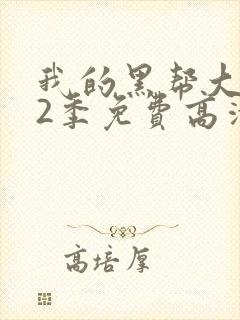 我的黑帮大
2季免費高清
高培厚